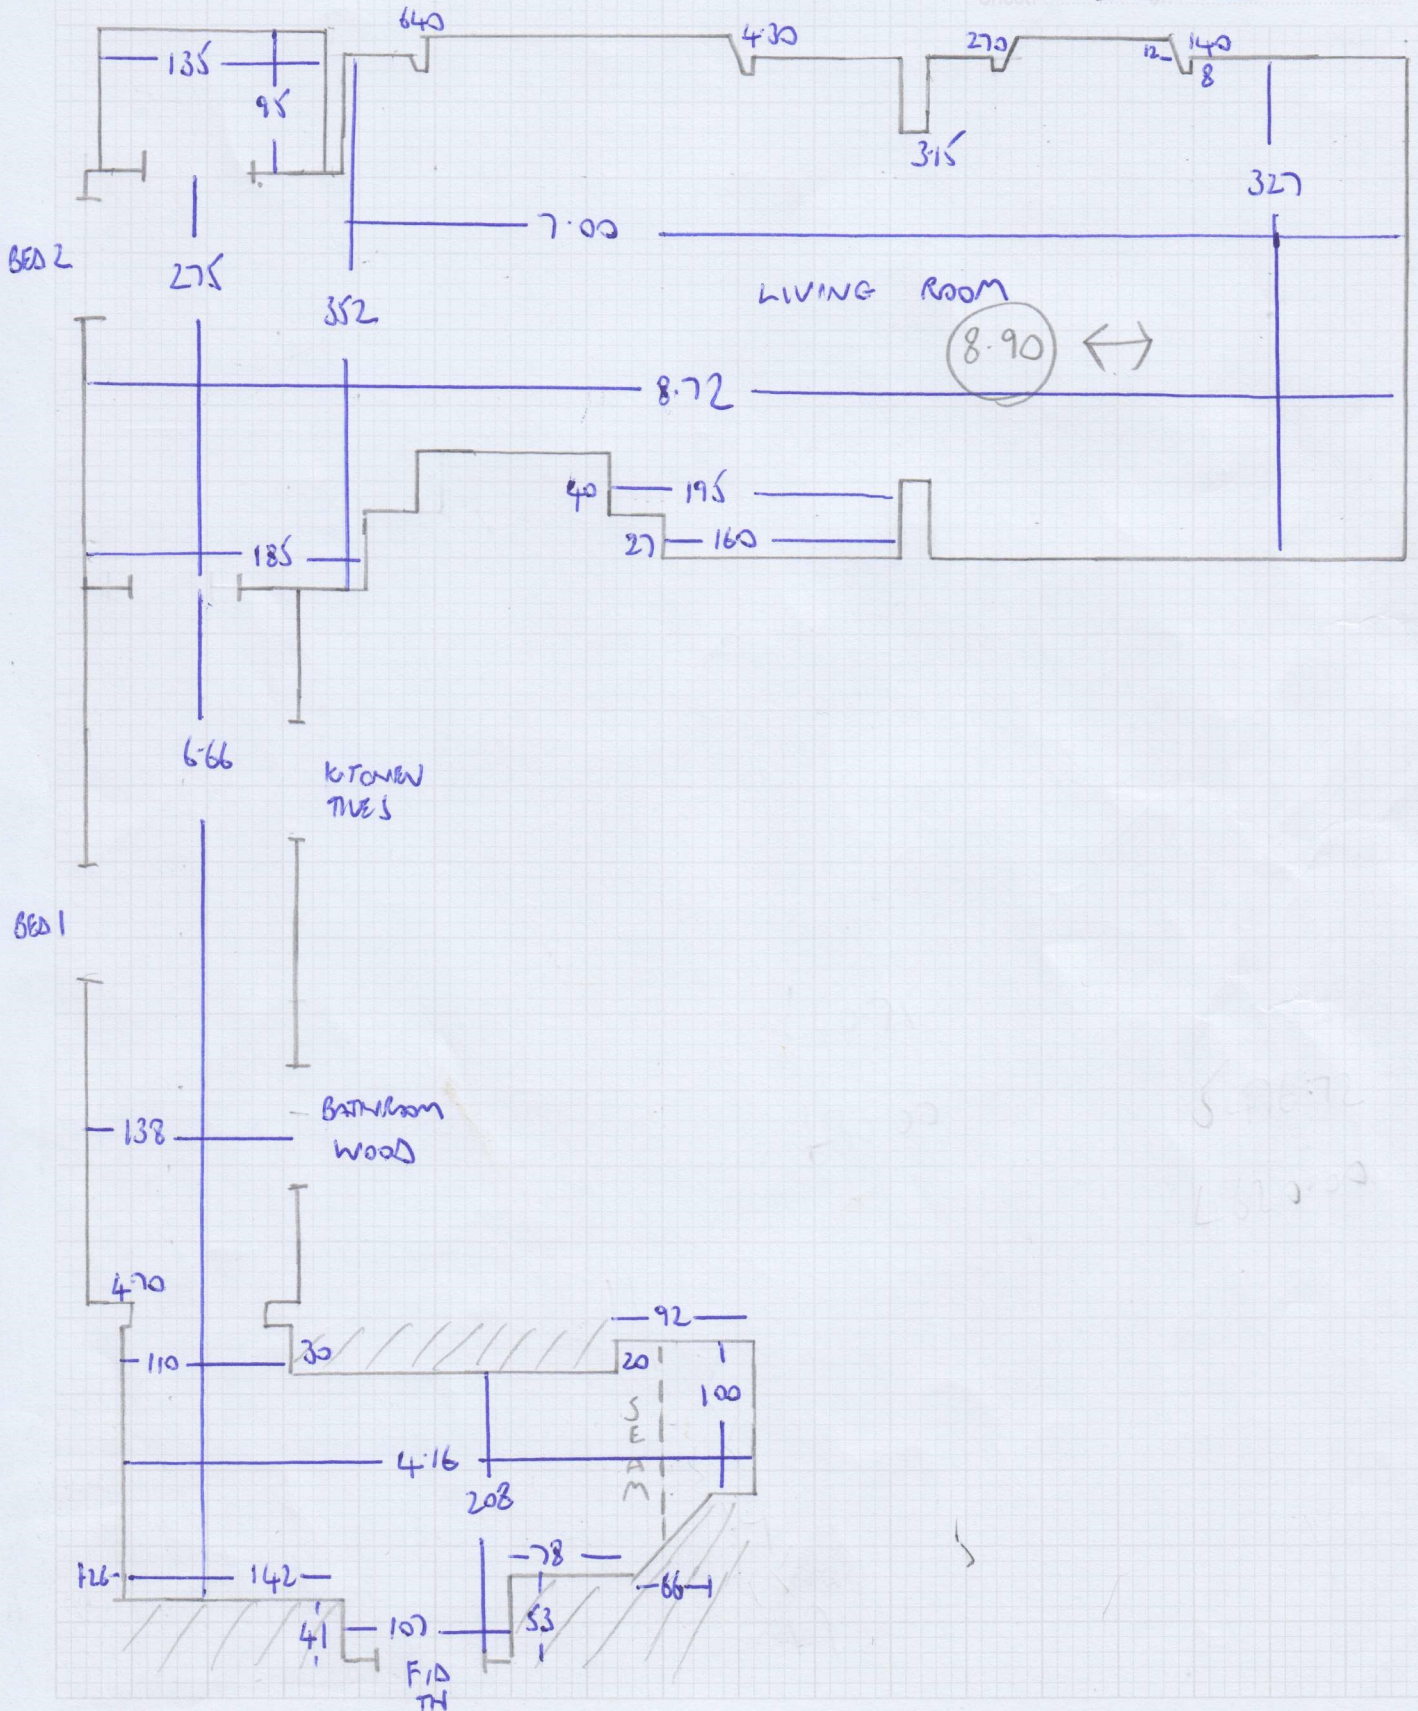 640
4.30
270
12
140
8
135
95
3.15
327
7.00
BED 2
275
352
LIVING ROOM
8.90
8.72
40
195
27
160
185
6.66
KITCHEN
TILES
BED 1
138
BATHROOM
WOOD
4.70
92
110
30
20
100
SEAM
4.16
208
78
142
66
41
107
53
F/D
TH